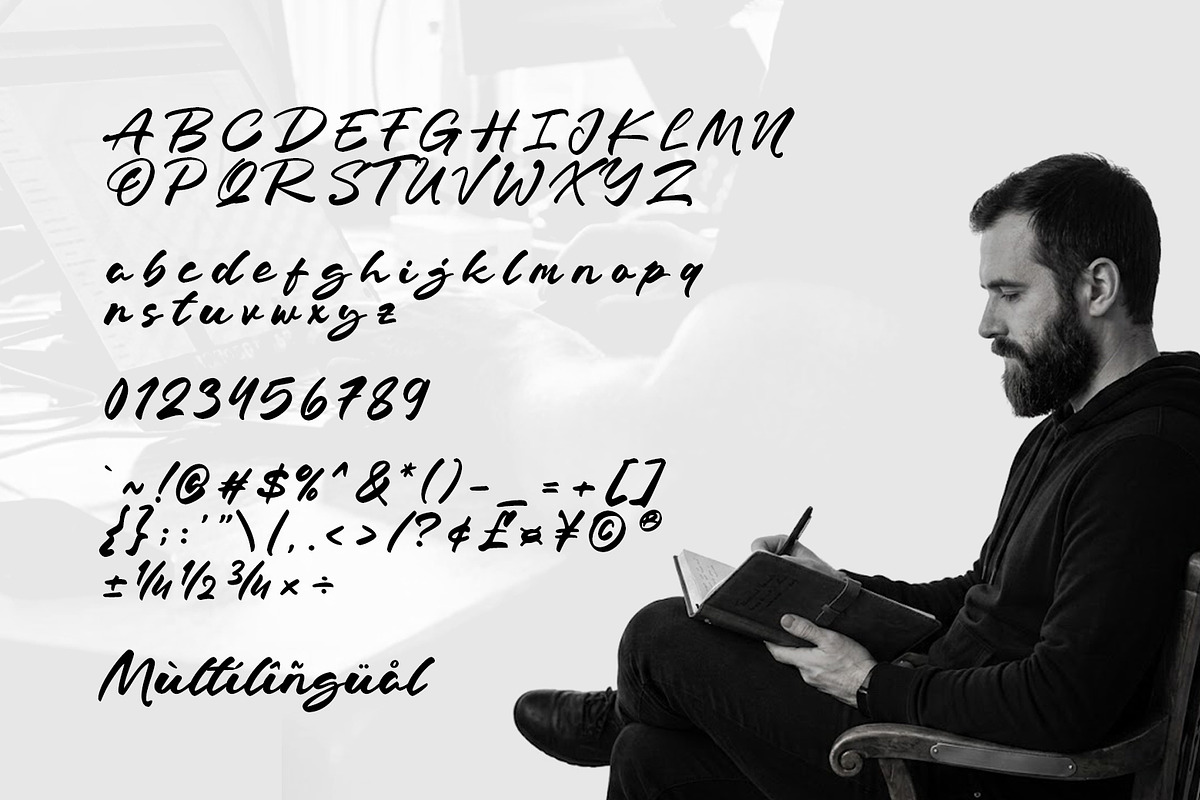 ABCDEFGHIJKLMN
OPQRSTUVWXYZ
abcdefghijklmnopq
rstuvwxyz
0123456789
`~!@#$%^&*()-_=+[]
{};:'"\|,.<>/?¢£¤¥©®
±¼½¾×÷
Mùltílîñgüål